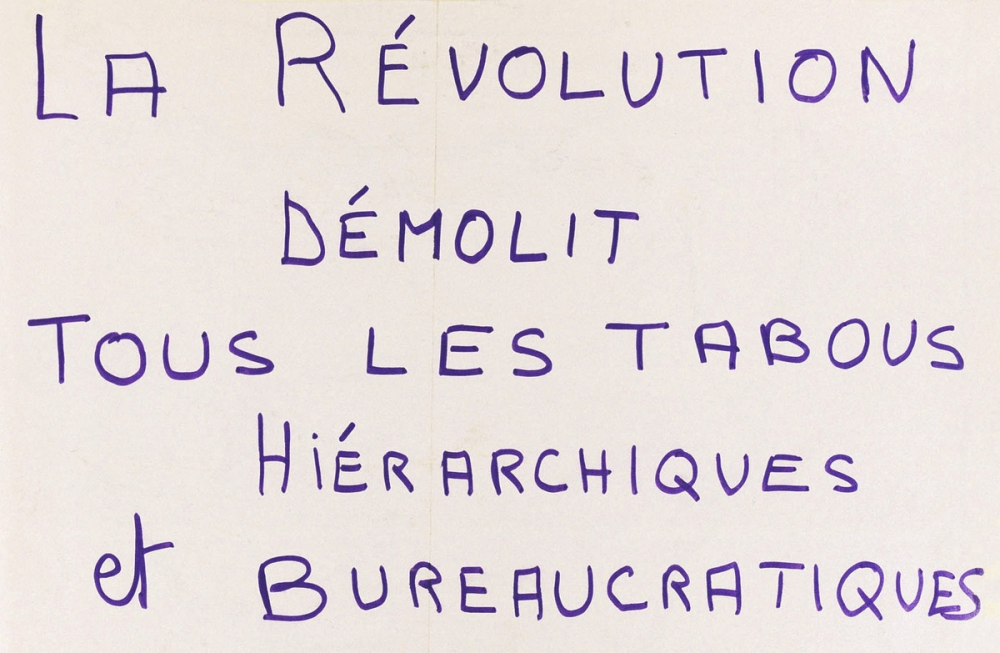 LA RÉVOLUTION
DÉMOLIT
TOUS LES TABOUS
HiÉRARCHIQUES
et BUREAUCRATIQUES